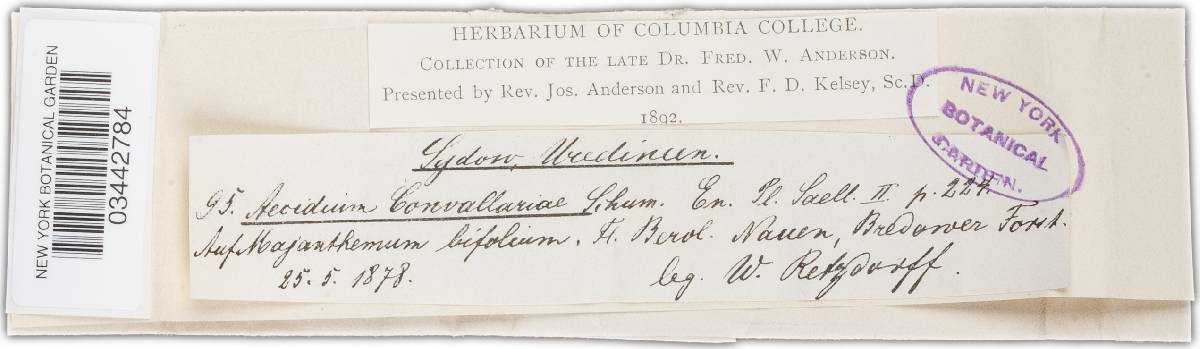 NEW YORK BOTANICAL GARDEN
03442784
HERBARIUM OF COLUMBIA COLLEGE.
COLLECTION OF THE LATE DR. FRED. W. ANDERSON.
Presented by Rev. Jos. Anderson and Rev. F. D. Kelsey, Sc.D.
1892.
NEW YORK
BOTANICAL
GARDEN.
Sydow, Uredineen.
95. Aecidium Convallariae Schum. En. Pl. Saell. II p. 224
Auf Majanthemum bifolium. Fl. Berol. Nauen, Bredower Forst.
25. 5. 1878. leg. W. Retzdorff.